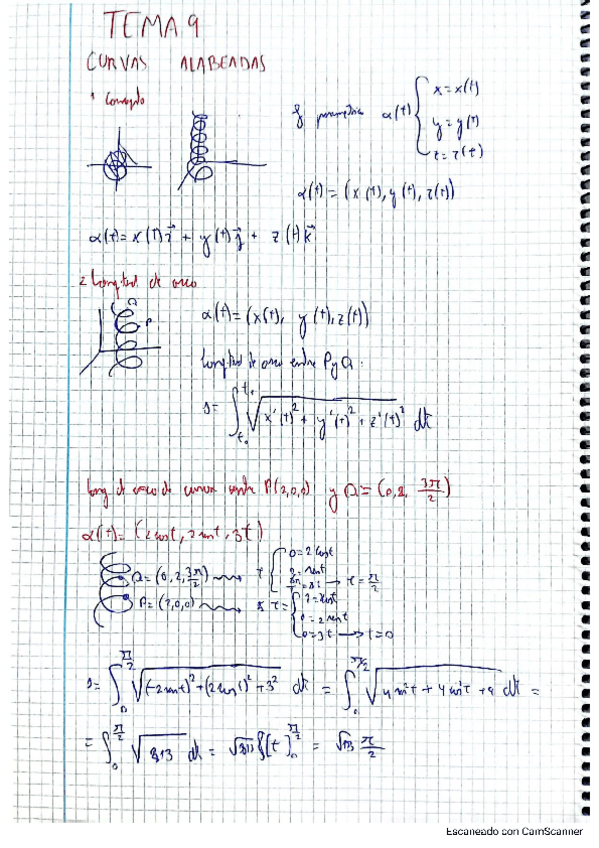 TEMA 9
CURVAS ALABEADAS
1 Concepto
α(t) { x = x(t)
y = y(t)
z = z(t)
α(t) = (x(t), y(t), z(t))
α(t) = x(t) i⃗ + y(t) j⃗ + z(t) k⃗
2 Longitud de arco
Q
P
α(t) = (x(t), y(t), z(t))
Longitud de arco entre P y Q.
s = ∫_{t₀}^{t₁} √(x'(t)² + y'(t)² + z'(t)²) dt
long de arco de curva entre P(2,0,0) y Q = (0, 2, 3π/2)
α(t) = (2cost, 2sent, 3t)
Q = (0, 2, 3π/2) t { 0 = 2cost
→ t = π/2
P = (2,0,0) t = {
0 = 2sent
0 = 3t → t = 0
s = ∫_0^{π/2} √((-2sent)² + (2cost)² + 3²) dt = ∫_0^{π/2} √(4sen²t + 4cos²t + 9) dt =
= ∫_0^{π/2} √13 dt = √13 [t]_0^{π/2} = √13 π/2
Escaneado con CamScanner